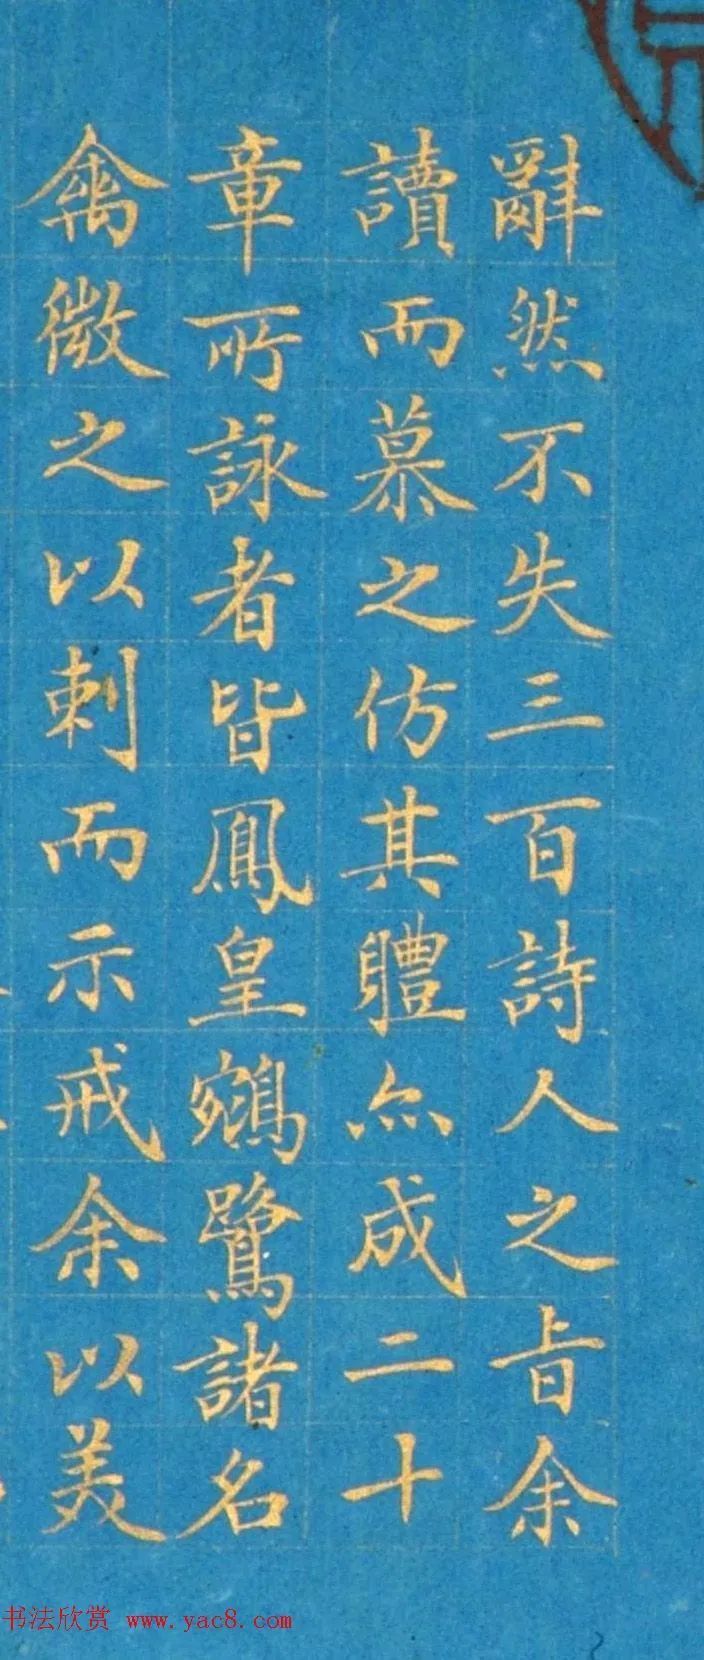 辭然不失三百詩人之旨余
讀而慕之仿其體亦成二十
章所詠者皆鳳皇鵷鷺諸名
禽微之以刺而示戒余以美
书法欣赏 www.yac8.com